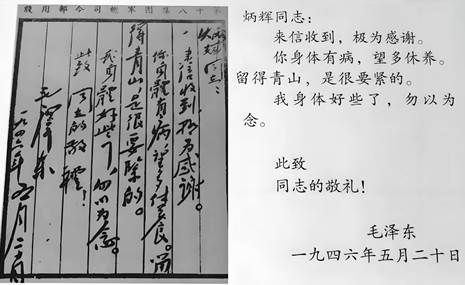 第十八集團軍總司令部用牋
炳輝同志：
来信收到，极为感谢。
你身體有病，望多休养。留
得青山，是很要緊的。
我身體好些了，勿以为念。
此致
同志的敬禮！
毛澤东
一九四六年五月二十日
炳辉同志：
来信收到，极为感谢。
你身体有病，望多休养。
留得青山，是很要紧的。
我身体好些了，勿以为
念。
此致
同志的敬礼！
毛泽东
一九四六年五月二十日